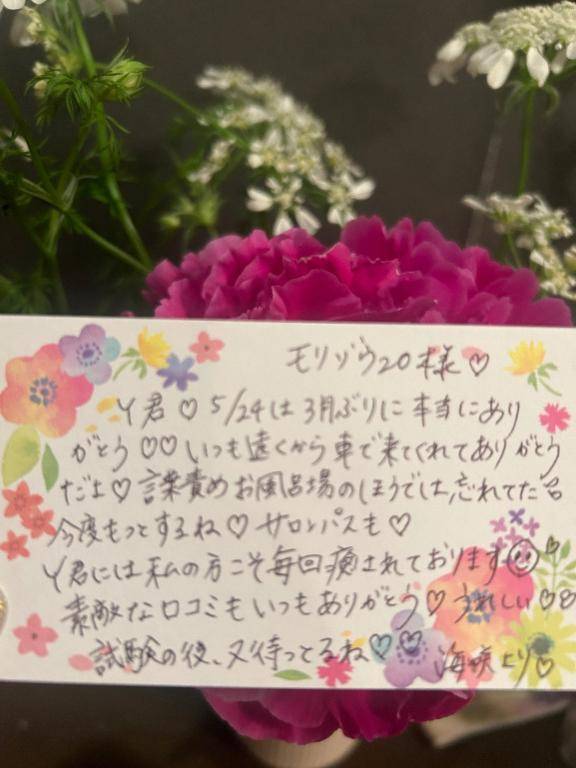 モリゾウ20様♡
Y君♡5/24は3月ぶりに本当にあり
がとう♡♡いつも遠くから車で来てくれてありがとう
だよ♡言葉責めお風呂場のほうでは、忘れてた
今度もっとするね♡サロンパスも♡
Y君には私の方こそ毎回癒されております
素敵な口コミもいつもありがとう♡うれしい♡♡
試験の後、又待ってるね♡♡ 海咲より♡